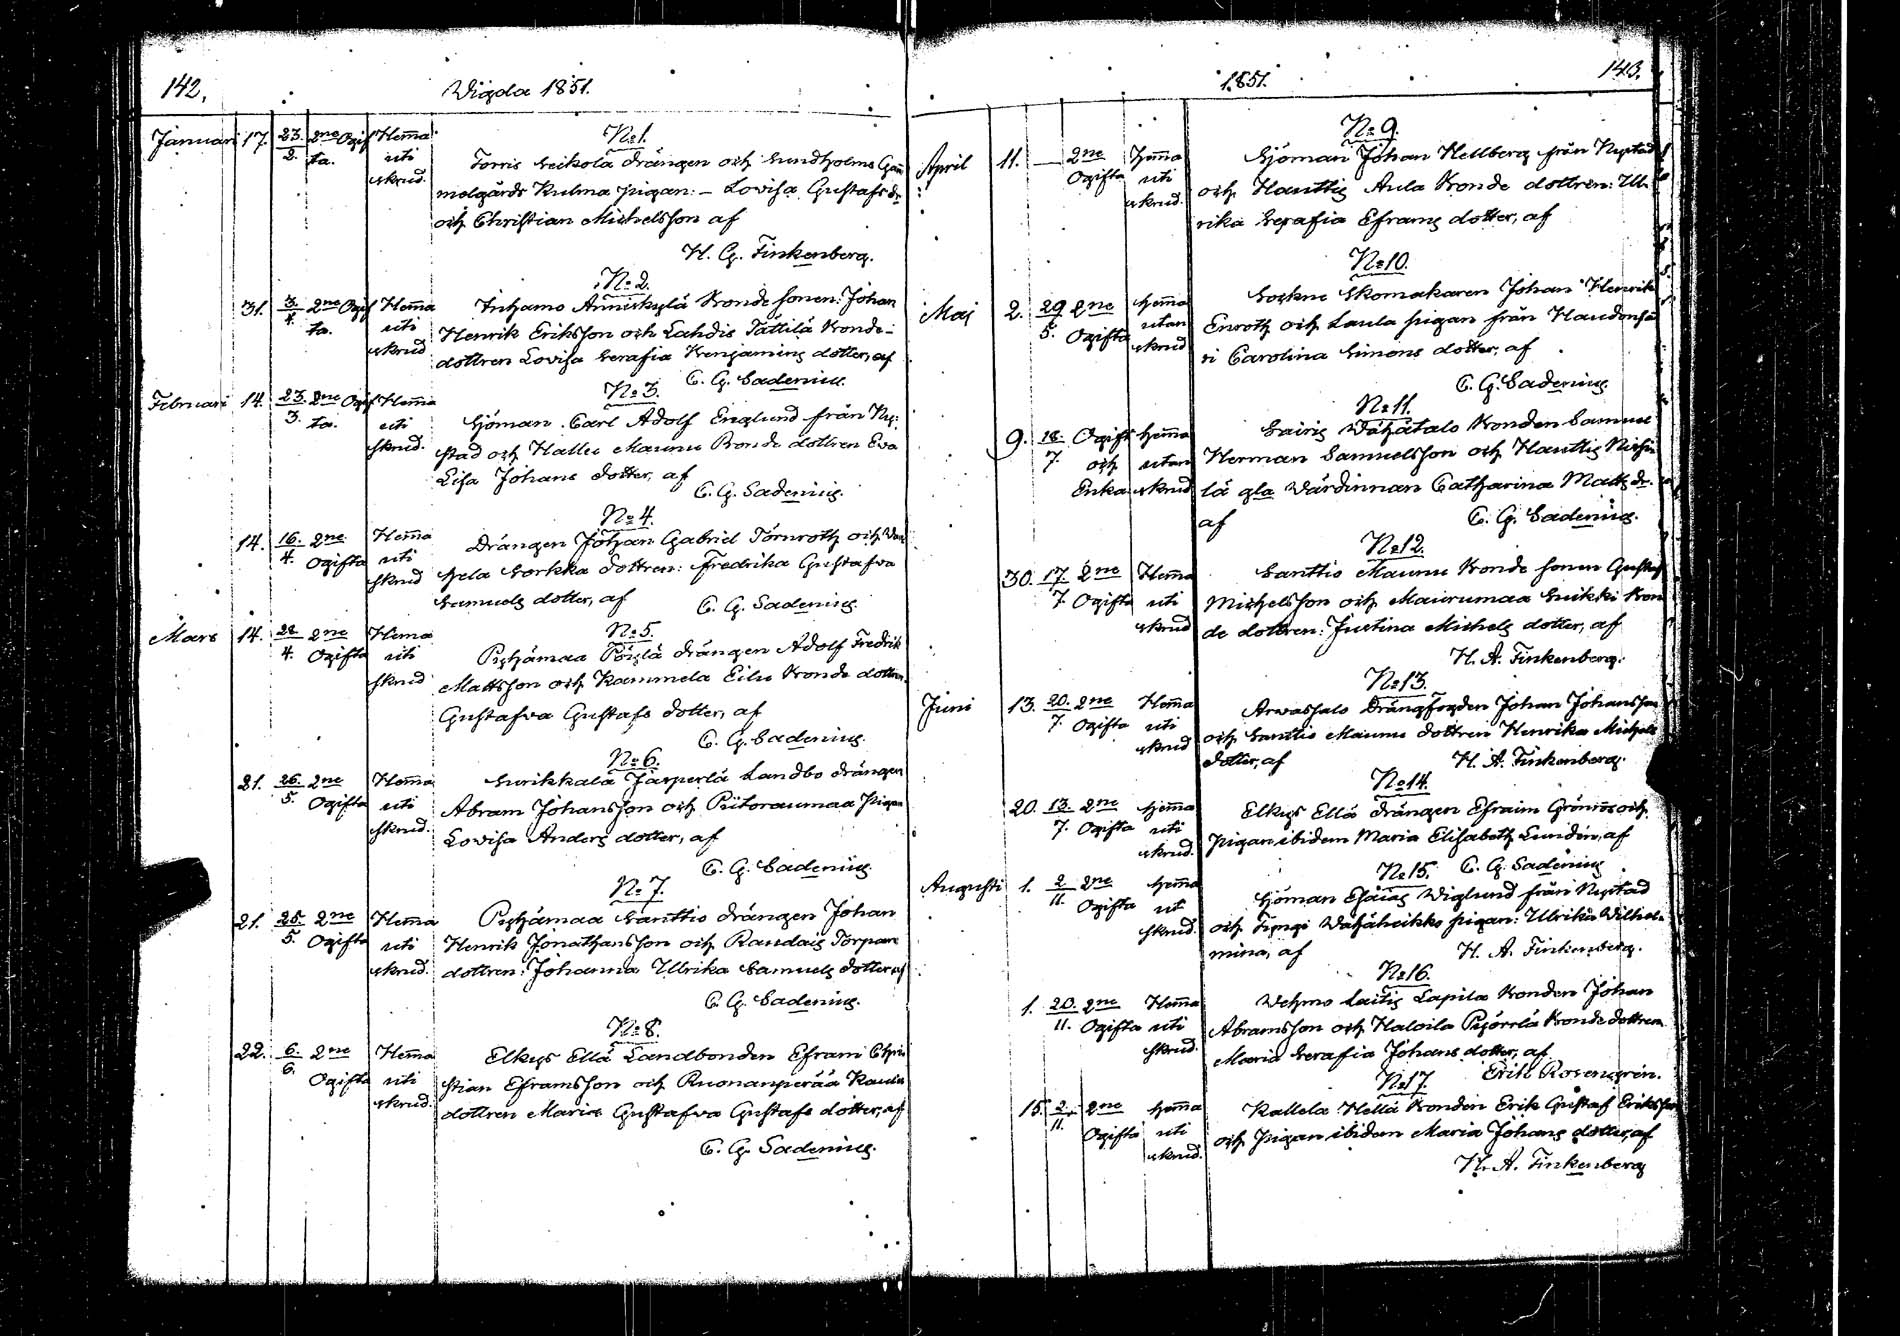 142.
Wigda 1851.
Januari 17. 23./2. 2ne Ogif Hemma
ta. uti
skrud.
No 1.
Torris Seikola drängen och Sundholms Gam
melgårds Kulma pigan: – Lovisa Gustafs dr
och Christian Michelsson af
H. G. Finkenberg.
31. 3./4. 2ne Ogif Hemma
ta. uti
skrud
No 2.
Inhamo Bonde sonen: Johan
Henrik Eriksson och Lahdis Tättilä Bonde-
dottren Lovisa Serafia Benjamins dotter, af
C. G. Sadenius.
Februari 14. 23./3. 2ne Ogif Hemma
ta. uti
skrud.
No 3.
Sjöman Carl Adolf Englund från Ny-
stad och Hallu Maunu Bonde dottren Eva
Lisa Johans dotter, af
C. G. Sadenius.
14. 16./4. 2ne Hemma
Ogifta uti
skrud
No 4.
Drängen Johan Gabriel Törnroth och
Sorkka dottren: Fredrika Gustafva
Samuels dotter, af
C. G. Sadenius.
Mars 14. 28/4. 2ne Hema
Ogifta uti
skrud
No 5.
Pyhämaa drängen Adolf Fredrik
Mattsson och Kammela Eilu Bonde dottren
Gustafva Gustafs dotter, af
C. G. Sadenius.
21. 26./5. 2ne Hemma
Ogifta uti
skrud.
No 6.
Surikkala Jasperlä Landbo drängen
Abram Johansson och Pitoraumaa pigan
Lovisa Anders dotter, af
C. G. Sadenius.
21. 25./5. 2ne Hemma
Ogifta uti
skrud.
No 7.
Pyhämaa Santtio drängen Johan
Henrik Jonathansson och Raudais Torpare
dottren: Johanna Ulrika Samuels dotter, af
C. G. Sadenius.
22. 6./6. 2ne Hemma
Ogifta uti
skrud.
No 8.
Elkys Ellä Landbonden Efraim Chri
stian Eframsson och Ruonanperää
dottren Maria Gustafva Gustafs dotter, af
C. G. Sadenius.
1851.
143.
April 11. — 2ne Hemma
Ogifta uti
skrud.
No 9.
Sjöman Johan Hellberg från Nystad
och Hauttis Aula Bonde dottren: Ul-
rika Serafia Eframs dotter, af
Maj 2. 29/5. 2ne Hemma
Ogifta utan
skrud
No 10.
Sorkne Skomakaren Johan Henrik
Enroth och Laula pigan från
ri Carolina Simons dotter, af
C. G. Sadenius.
9. 18./7. Ogift Hemma
och utan
Enka skrud
No 11.
Sairis Wähätalo Bonden Samuel
Herman Samuelsson och Hauttis
lä gla Wärdinnan Catharina Matts dr.
af
C. G. Sadenius.
30. 17./7. 2ne Hemma
Ogifta uti
skrud
No 12.
Santtio Maunu Bonde sonen Gustaf
Michelsson och Maurumaa Bon
de dottren: Justina Michels dotter, af
H. A. Finkenberg.
Juni 13. 20./7. 2ne Hemma
Ogifta uti
skrud
No 13.
Arvassalo Drängfogden Johan Johansson
och Santtio Maunu dottren Henrika Michels
dotter, af
H. A. Finkenberg.
20. 13./7. 2ne Hemma
Ogifta uti
skrud.
No 14.
Elkys Ellä drängen Efraim Grönros och
pigan ibidem Maria Elisabeth Lundén, af
C. G. Sadenius
Augusti 1. 2/11. 2ne Hemma
Ogifta uti
skrud.
No 15.
Sjöman Esaias Wiglund från Nystad
och Wähäheikko pigan: Ulrika Wilhel-
mina, af
H. A. Finkenberg.
1. 20./11. 2ne Hemma
Ogifta uti
skrud.
No 16.
Wehmo Laitis Lapila Bonden Johan
Abramsson och Haloila Pyörrlä Bonde dottren
Maria Serafia Johans dotter, af
Erik Rosengrén.
15. 2./11. 2ne Hemma
Ogifta uti
skrud.
No 17.
Kallela Hellä Bonden Erik Gustaf Eriksson
och pigan ibidem Maria Johans dotter, af
H. A. Finkenberg